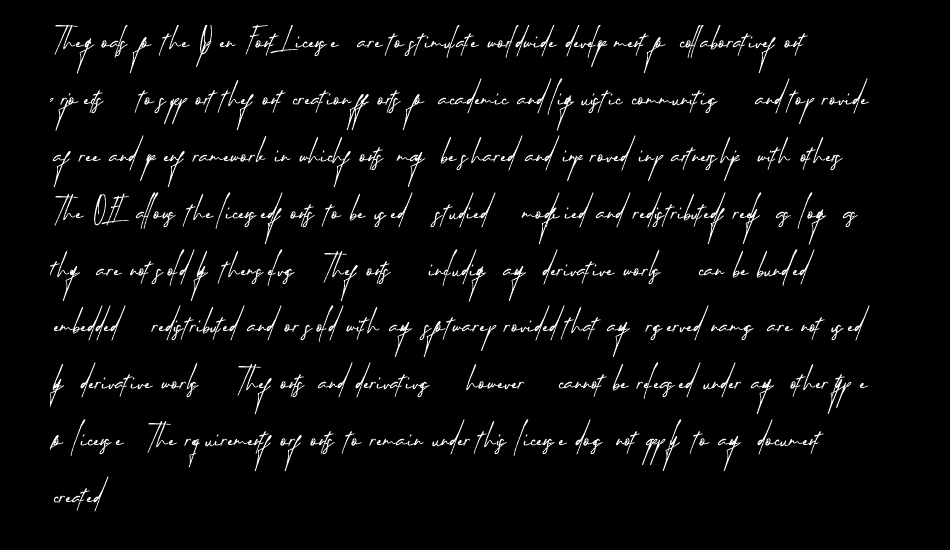 The goals of the Open Font License are to stimulate worldwide development of collaborative font
projects to support the font creation efforts of academic and linguistic communities and to provide
a free and open framework in which fonts may be shared and improved in partnership with others
The OFL allows the licensed fonts to be used studied modified and redistributed freely as long as
they are not sold by themselves The fonts including any derivative works can be bundled
embedded redistributed and or sold with any software provided that any reserved names are not used
by derivative works The fonts and derivatives however cannot be released under any other type
of license The requirement for fonts to remain under this license does not apply to any document
created